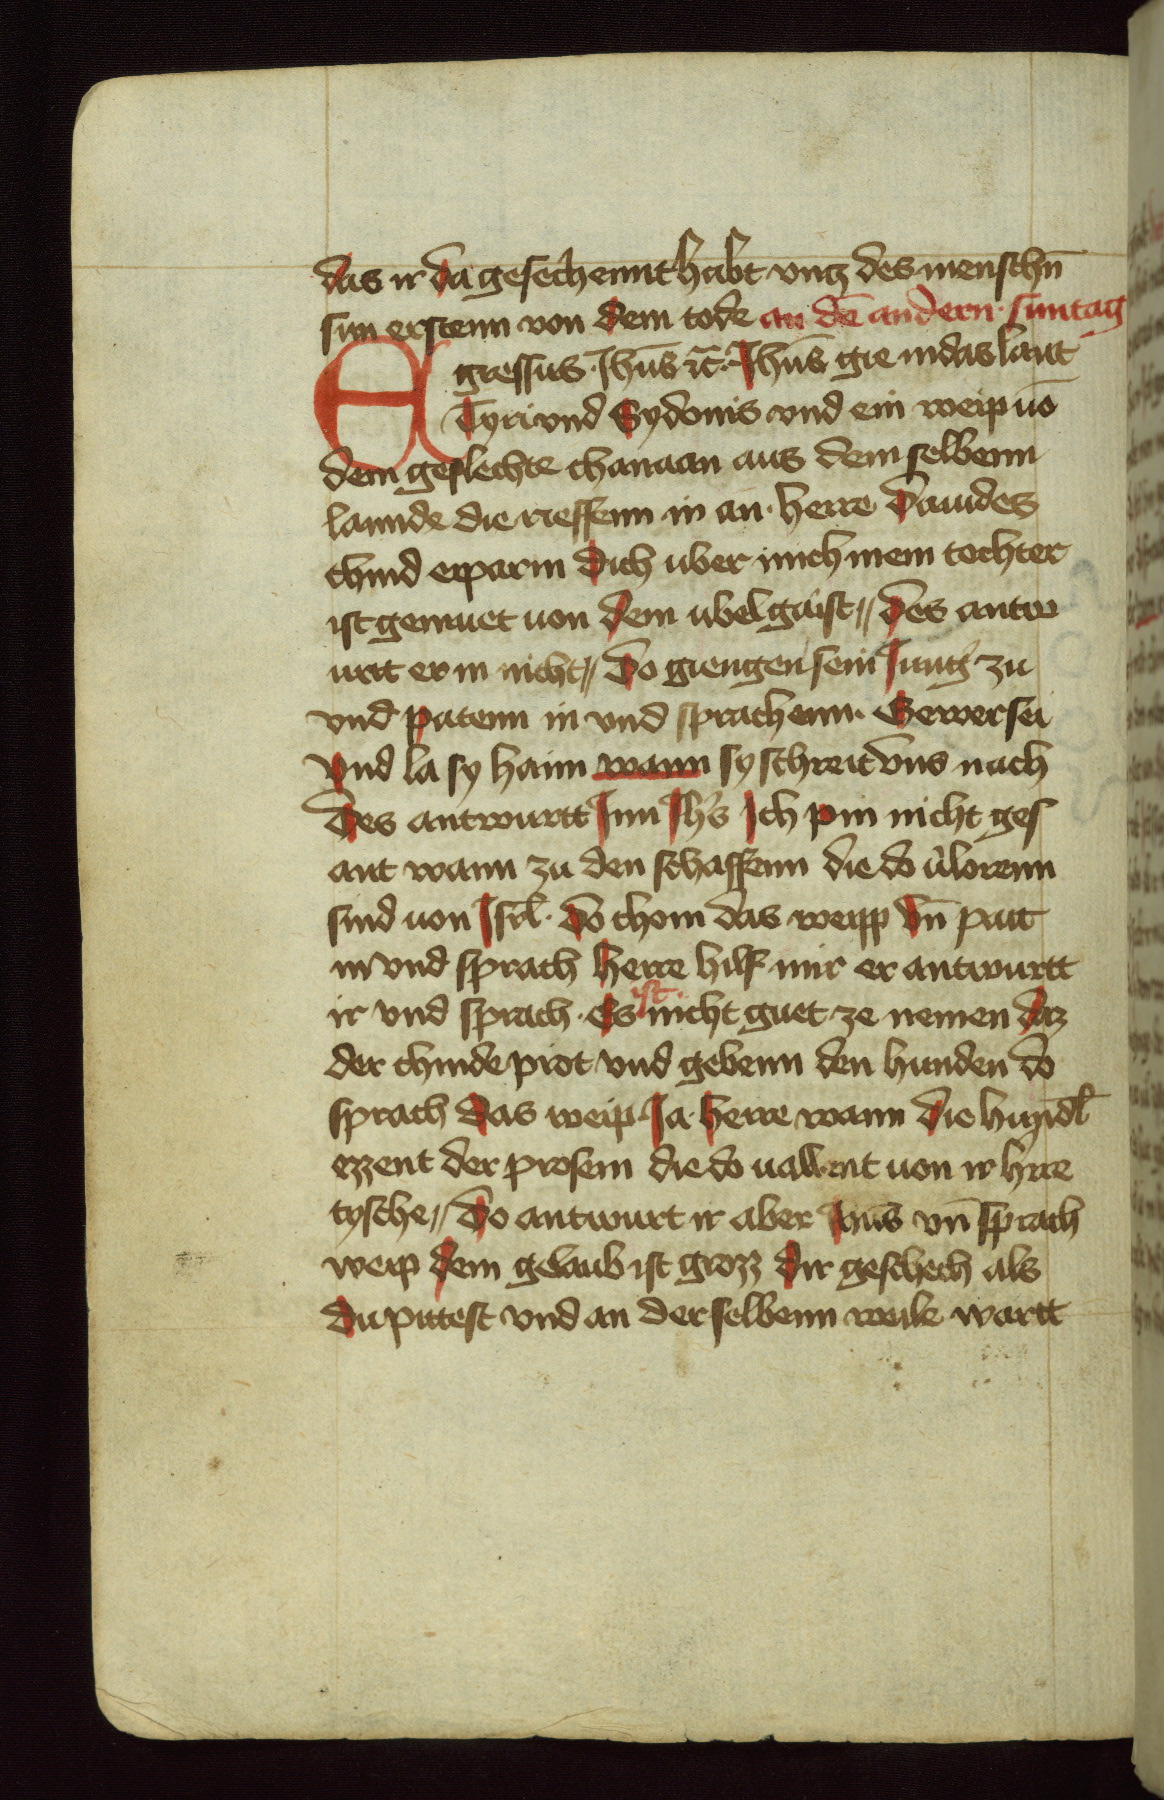 das ir da gesechennt habt vntz des menschn̄
sun erstenn von dem tode an dē andern suntag
Egressus Jhūs ꝛc̄ Jhūs gie in das lant
Tyri vnd Sydonis vnd ein weip uō
dem geslechte chanaan aus dem selbenn
lannde die rieffenn in an herre dauides
chind erparm dich uber mich mein tochter
ist gemuet uon dem ubel gaist〃 des antw
urt er in nicht〃 do giengen sein Jung̕ zu
vnd patenn in vnd sprachenn Gewer sei
vnd la sy haim wann sy schreit vns nach
Des antwurtt Jnn Jhs Jch pin nicht ges
ant wann zu den schaffenn die do u̕lorenn
sind uon Jsrl do chom das weip vn̄ patt
in vnd sprach herre hilf mir er antwurtt
ir vnd sprach Es ist nicht guet ze nemen daz
der chinde prot vnd gebenn den hunden do
sprach das weip Ja herre wann die hundl
ezzent der prosem die do uallent uon ir hrre
tysche〃 do antwurt ir aber Jhūs vn̄ sprach
weip dein gelaub ist grozz dir geschech als
du pittest vnd an der selbenn weile wartt